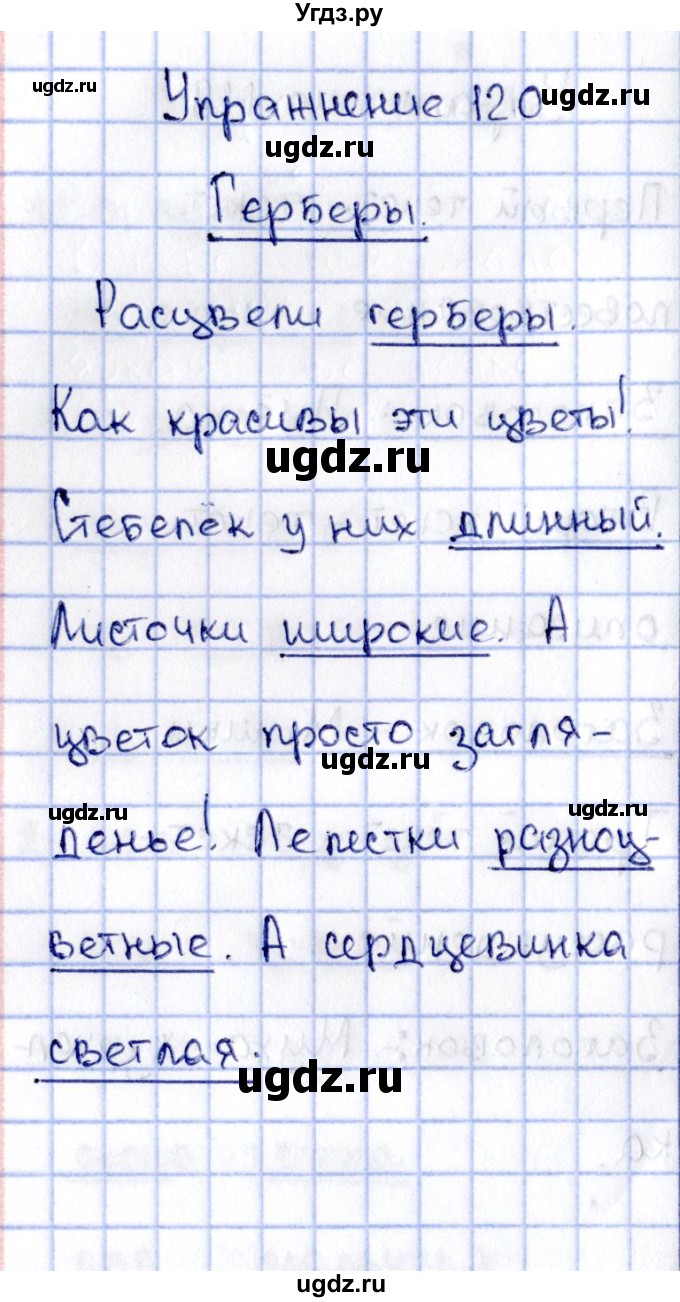 Угдз.ру
ugdz.ru
Упражнение 120 ugdz.ru
ugdz.ru
Герберы.
Расцвели герберы.
Как красивы эти цветы!
ugdz.ru
Стебелёк у них длинный.
Листочки широкие. А
цветок просто загля-
ugdz.ru
ugdz.ru
ugdz.ru
денье! Лепестки разноц-
ветные. А сердцевинка
светлая.
ugdz.ru
ugdz.ru